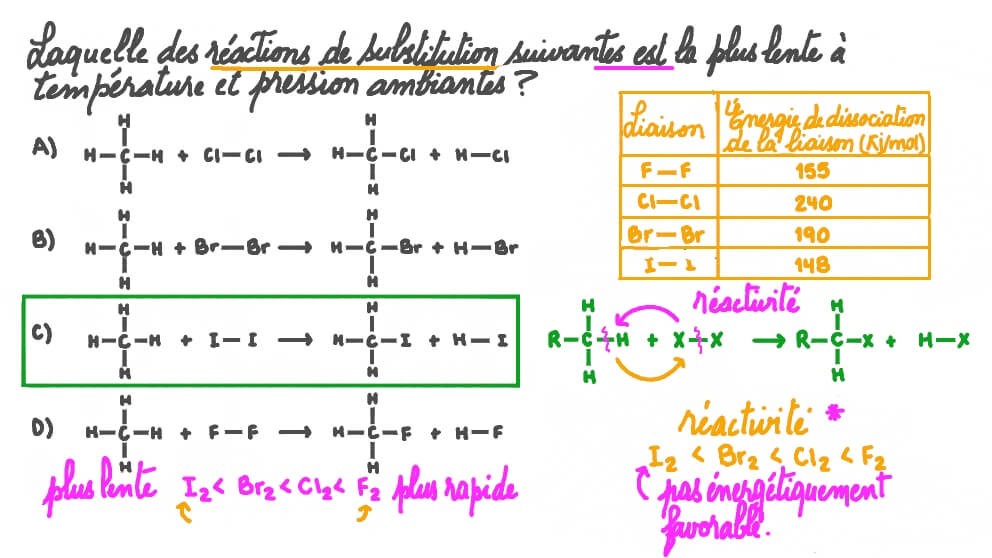 Laquelle des réactions de substitution suivantes est la plus lente à
température et pression ambiantes ?
A)
H
H—C—H + Cl—Cl ⟶ H—C—Cl + H—Cl
H
B)
H
H—C—H + Br—Br ⟶ H—C—Br + H—Br
H
C)
H
H—C—H + I—I ⟶ H—C—I + H—I
H
D)
H
H—C—H + F—F ⟶ H—C—F + H—F
H
plus lente I₂ < Br₂ < Cl₂ < F₂ plus rapide
Liaison
L'Énergie de dissociation
de la liaison (Kj/mol)
F—F 155
Cl—Cl 240
Br—Br 190
I—I 148
réactivité
H H
R—C—H + X—X ⟶ R—C—X + H—X
H H
réactivité *
I₂ < Br₂ < Cl₂ < F₂
pas énergétiquement
favorable.